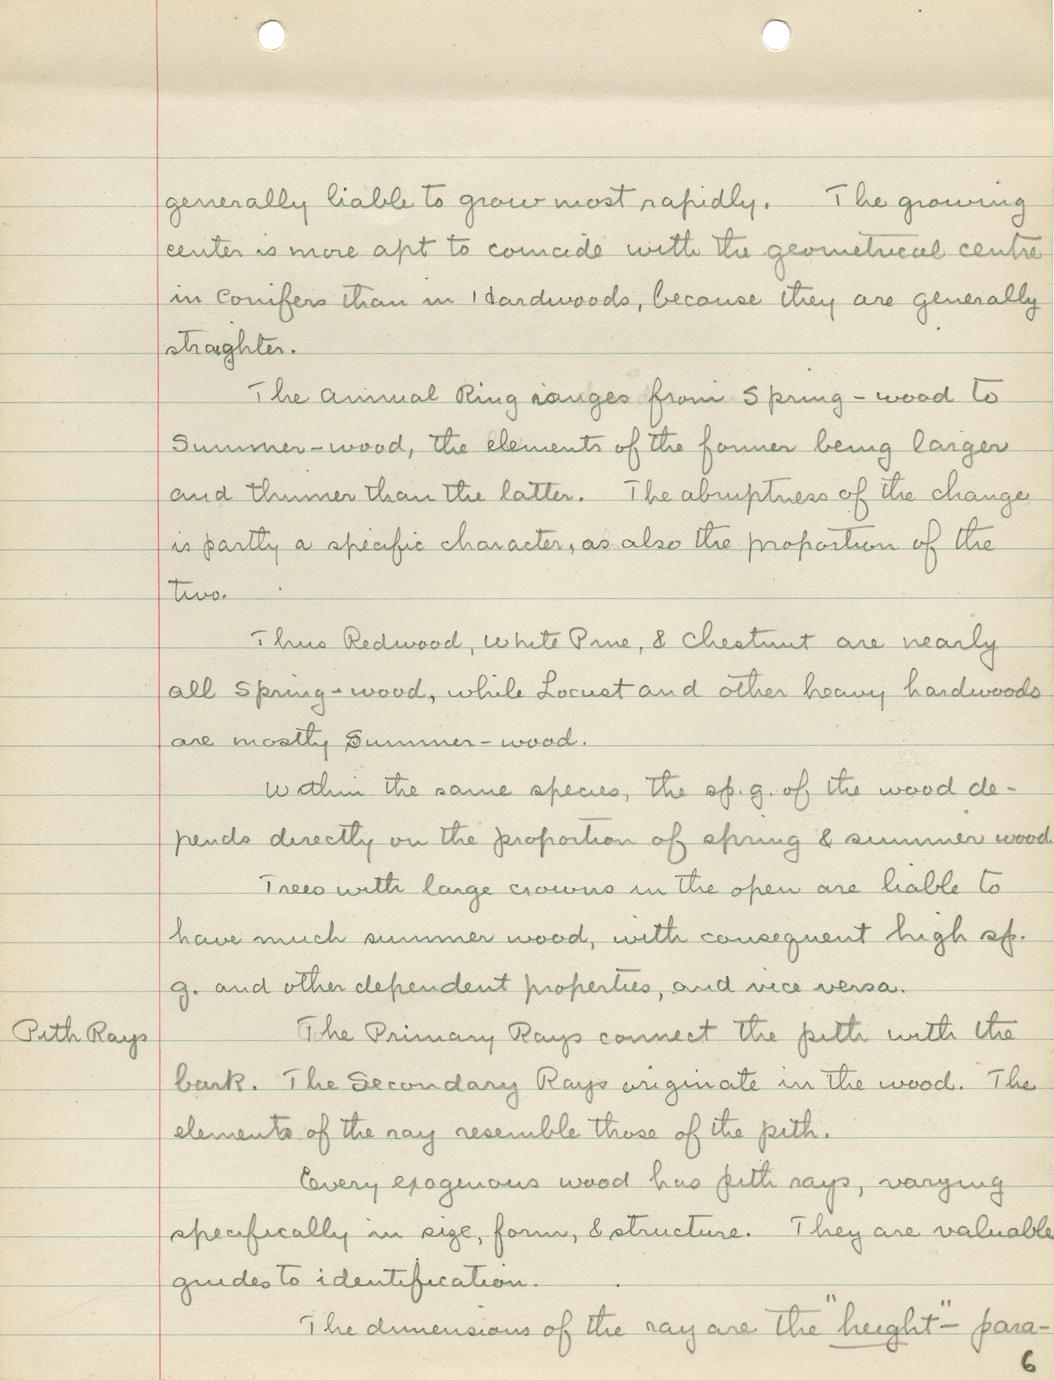 generally liable to grow most rapidly. The growing
center is more apt to coincide with the geometrical centre
in Conifers than in Hardwoods, because they are generally
straghter.
The Annual Ring ranges from Spring-wood to
Summer-wood, the elements of the former being larger
and thinner than the latter. The abruptness of the change
is partly a specific character, as also the proportion of the
two.
Thus Redwood, White Pine, & Chestnut are nearly
all Spring-wood, while Locust and other heavy hardwoods
are mostly Summer-wood.
Within the same species, the sp.g. of the wood de-
pends directly on the proportion of spring & summer wood.
Trees with large crowns in the open are liable to
have much summer wood, with consequent high sp.
g. and other dependent properties, and vice versa.
Pith Rays The Primary Rays connect the pith with the
bark. The Secondary Rays originate in the wood. The
elements of the ray resemble those of the pith.
Every exogenous wood has pith rays, varying
specifically in size, form, & structure. They are valuable
guides to identification.
The dimensions of the ray are the "height" - para-
6